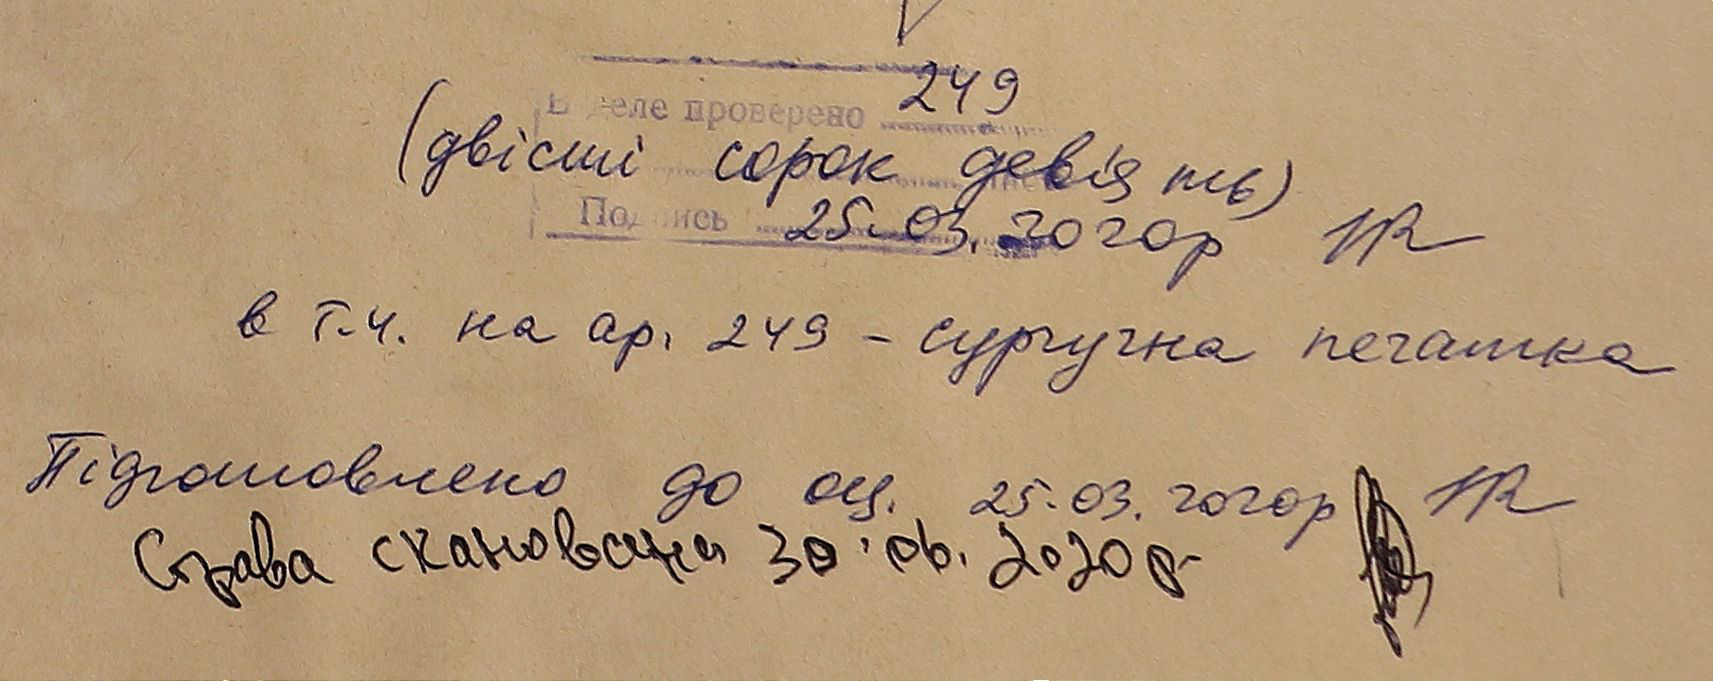 В деле проверено 249
(двісті сорок дев'ять)
Подпись 25.03.2020р
в т.ч. на ар. 249 - сургучна печатка
Підготовлено до оц. 25.03.2020р
Справа сканована 30.06.2020р